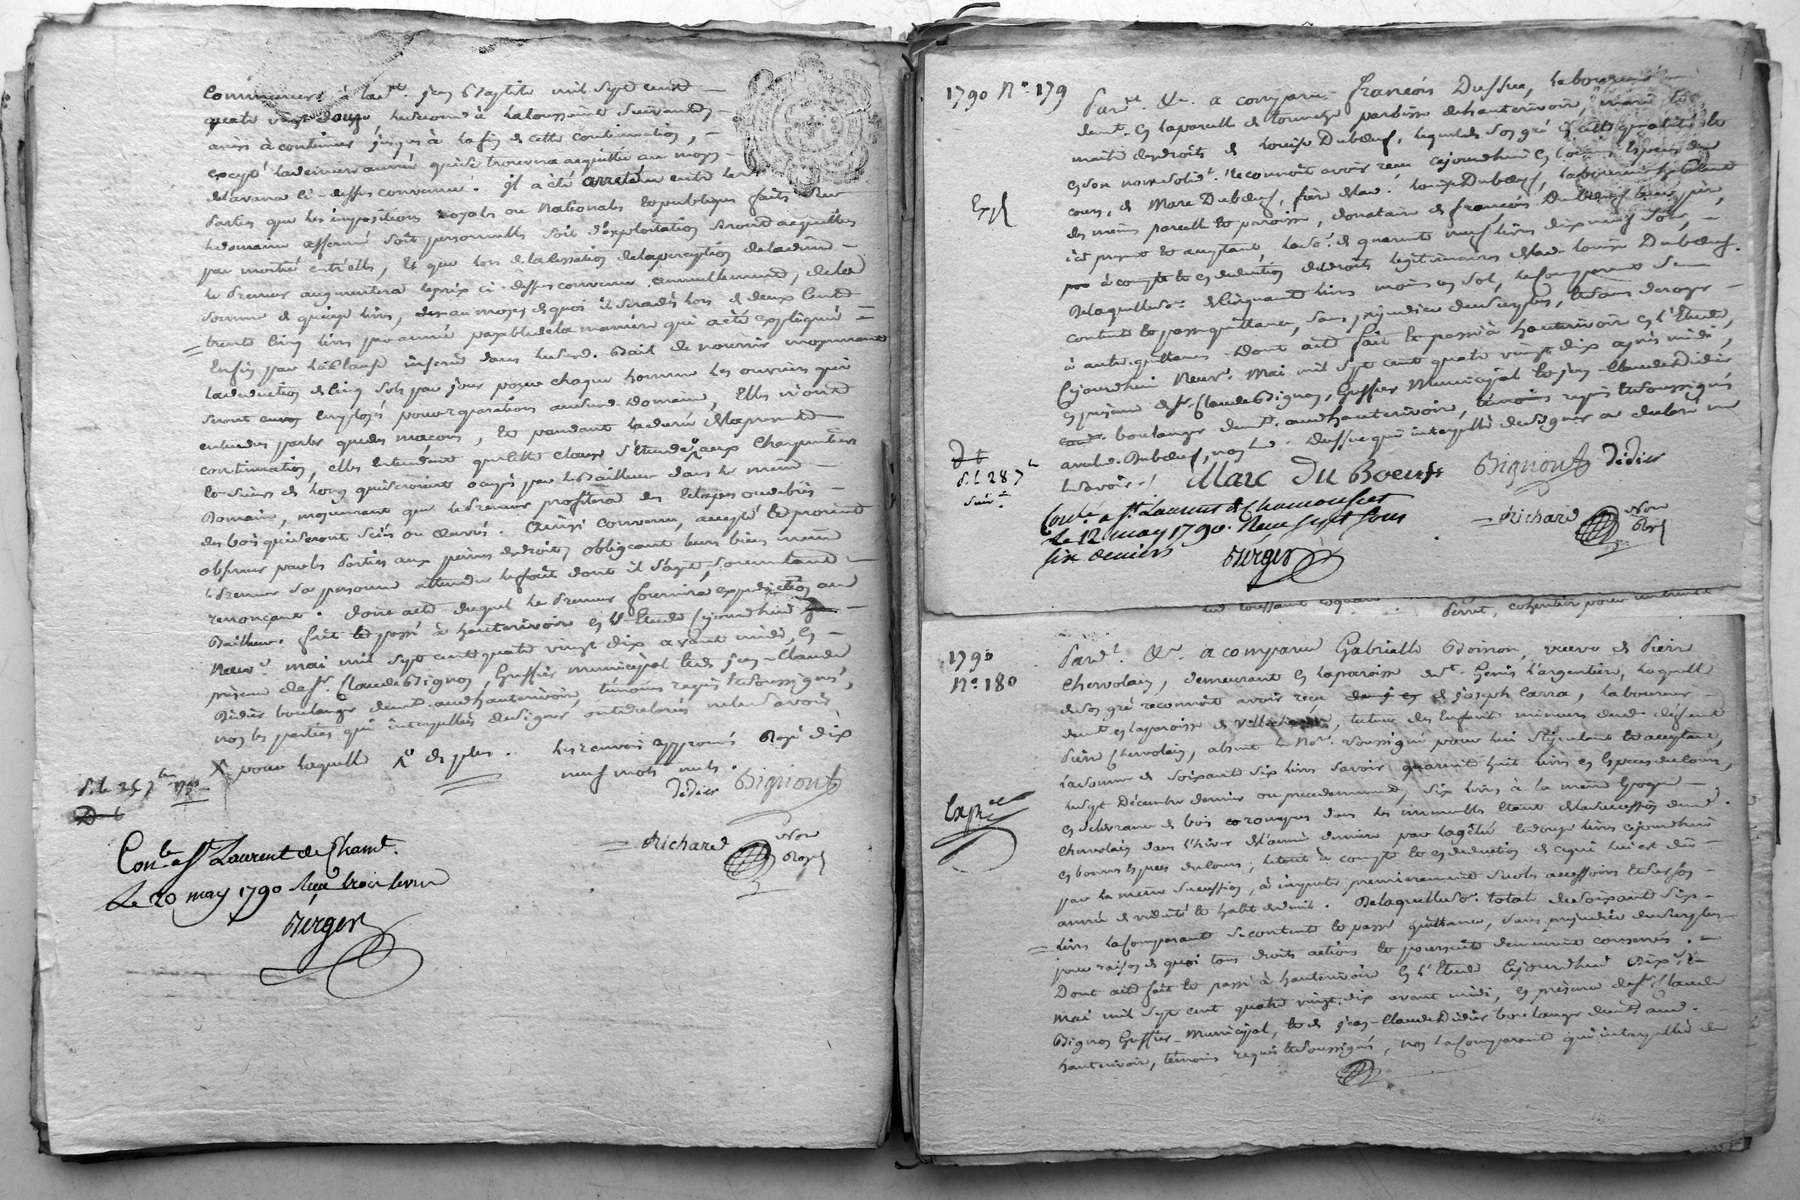 commencer à la st. jean Baptiste mil sept cent
quatre vingt douze, la seconde à la toussaint suivante,
ainsi à continuer jusques à la fin de cette continuation,
excepté la derniere année qui se trouvera acquittée au moyen
de l'avance ci-dessus convenue. il a été arrêté entre les
parties que les impositions royales ou nationales et publiques faites sur
le domaine affermé soit personnelles soit d'exploitation seront acquittées
par moitié entr'elles, et que lors de la cessation de la perception de la dime
le preneur augmentera le prix ci-dessus convenu annuellement, de la
somme de quinze livres, au moyen de quoi il sera dès lors de deux cent
trente cinq livres par année payable de la maniere qui a été expliquée
Enfin par la clause inserée dans led. Bail de nourrir moyennant
la deduction de cinq sols par jour pour chaque homme les ouvriers qui
seront employés pour reparations aud. Domaine, elles n'ont
entendu parler que des maçons, et pendant la durée de la presente
continuation, elles entendent que cette clause s'étende aux charpentiers
et scieurs de long qui seroient occupés par le Bailleur dans le même
Domaine, moyennant que le preneur profitera des
des bois qui seront sciés ou œuvrés. Ainsi convenu, accepté et promis
observer par les parties aux peines de droit, obligeant leurs biens même
le preneur sa personne attendu le fait dont il s'agit, soumettant
renonçant. Dont acte duquel le preneur fournira expedition au
Bailleur. fait et passé à hauterivoire en l'Etude cejourd'hui
neuf mai mil sept cent quatre vingt dix avant midi, en
présence de sr. Claude Bignon, Greffier municipal et de jean-Claude
Didier boulanger demt. aud. hauterivoire, témoins requis et soussignés,
non les parties qui interpellées de signer ont déclaré ne le savoir
X pour laquelle de plus. les renvois approuvés Rayé dix
neuf mots nuls.
Didier Bignon
Richard Nore
Royal
Conle. a St. Laurent de Cham.
Le 20 may 1790 Reçu trois livres
Verger
1790 N.o 179
Pardt. &c. a comparu françois Dussuc, laboureur
demt. en la parcelle de paroisse de hauterivoire, mari et
maitre des droits de Louise Duboeuf, lequel de son gré en cette qualité et
en son nom solide. reconnoit avoir reçu cejourd'hui en bonnes especes du
cours, de Marc Duboeuf, frere de lad. Louise Duboeuf, laboureur habitant
des même parcelle et paroisse, donataire de françois Duboeuf leur père,
ici present et acceptant, la so. de quarante neuf livres dix neuf sols,
à compte et en deduction des droits legitimaires de lad. Louise Duboeuf.
De laquelle so. de cinquante livres moins un sol, le comparant se
contente et passe quittance, sans prejudice du surplus, et sans deroger
à autre quittance. Dont acte fait et passé à hauterivoire en l'Etude,
cejourd'hui neuf Mai mil sept cent quatre vingt dix après midi,
en présence de sr. Claude Bignon, Greffier Municipal et jean-Claude Didier
boulanger demt. aud. hauterivoire, témoins requis et soussignés
avec led. Duboeuf, non led. Dussuc qui interpellé de signer a declaré ne
le savoir.
Marc Du Boeuf Bignon Didier
Richard Nore
Royal
Conle. a St. Laurent de Chamousset
Le 12 may 1790. Reçu sept sous
six deniers
Verger
1790
N.o 180
Pardt. &c. a comparu Gabrielle Boinon, veuve de Pierre
Chervolain, demeurant en la paroisse de st. Genis l'argentiere, laquelle
de son gré reconnoit avoir reçu de joseph Carra, laboureur
demt. en la paroisse de Villechenève, tuteur des enfants mineurs dud. défunt
Pierre Chervolain, absent le nore. soussigné pour lui stipulant et acceptant,
la somme de soixante six livres savoir quarante huit livres en especes du cours,
le sept Décembre dernier ou precedemment, six livres à la même epoque
en delivrance de bois dans les immeubles etant de la succession dud.
Chervolain dans l'hiver de l'année derniere par la gelée et douze livres cejourd'hui
en bonnes especes du cours; le tout à compte et en deduction de ce qui lui est dû
par la même succession, à imputer premierement sur les accessoires et sur son
année de viduité et habit de deuil. De laquelle so. totale de soixante six
livres la comparante se contente et passe quittance, sans prejudice du surplus
pour raison de quoi tous droits actions et poursuite demeurent conservés.
Dont acte fait et passé à hauterivoire en l'Etude cejourd'hui dix
mai mil sept cent quatre vingt dix avant midi, en présence de sr. Claude
Bignon Greffier Municipal, et de jean-Claude Didier boulanger demt. aud.
hauterivoire, témoins requis et soussignés, non la comparante qui interpellée de